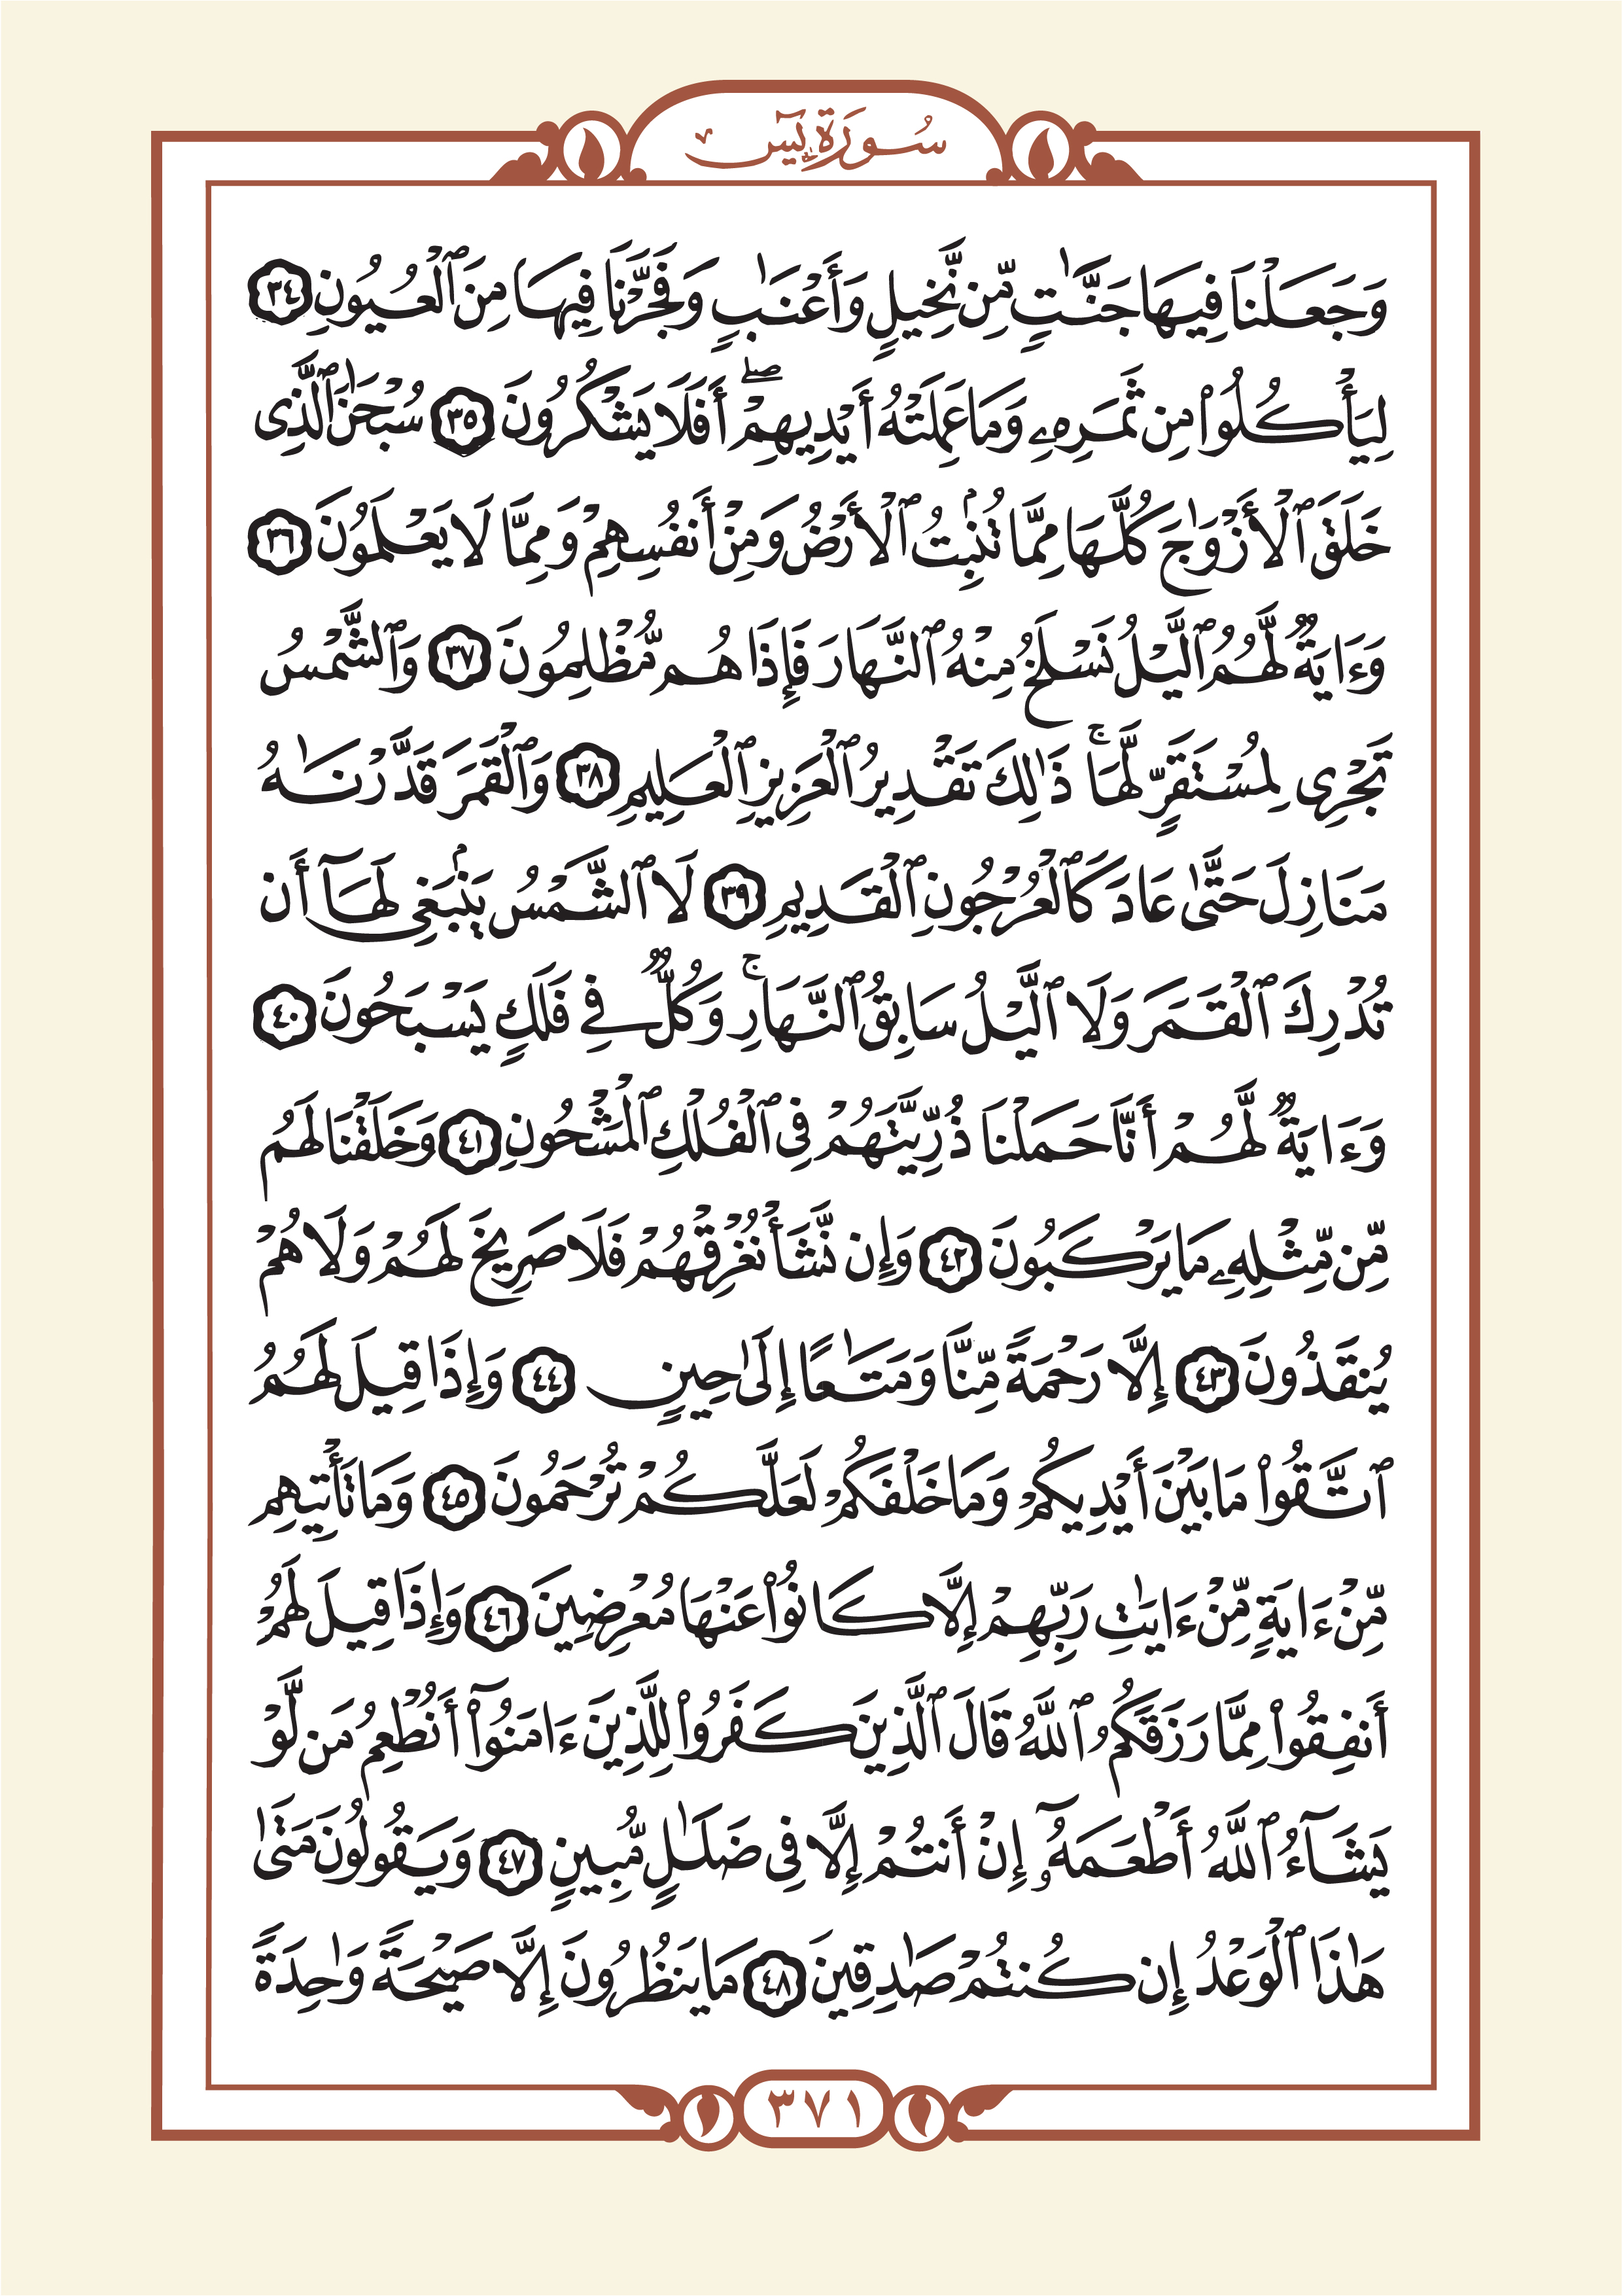 سُورَةُ يسٓ
وَجَعَلْنَا فِيهَا جَنَّـٰتٍ مِّن نَّخِيلٍ وَأَعْنَـٰبٍ وَفَجَّرْنَا فِيهَا مِنَ ٱلْعُيُونِ ٣٤
لِيَأْكُلُوا۟ مِن ثَمَرِهِۦ وَمَا عَمِلَتْهُ أَيْدِيهِمْ ۖ أَفَلَا يَشْكُرُونَ ٣٥ سُبْحَـٰنَ ٱلَّذِى
خَلَقَ ٱلْأَزْوَٰجَ كُلَّهَا مِمَّا تُنۢبِتُ ٱلْأَرْضُ وَمِنْ أَنفُسِهِمْ وَمِمَّا لَا يَعْلَمُونَ ٣٦
وَءَايَةٌ لَّهُمُ ٱلَّيْلُ نَسْلَخُ مِنْهُ ٱلنَّهَارَ فَإِذَا هُم مُّظْلِمُونَ ٣٧ وَٱلشَّمْسُ
تَجْرِى لِمُسْتَقَرٍّ لَّهَا ۚ ذَٰلِكَ تَقْدِيرُ ٱلْعَزِيزِ ٱلْعَلِيمِ ٣٨ وَٱلْقَمَرَ قَدَّرْنَـٰهُ
مَنَازِلَ حَتَّىٰ عَادَ كَٱلْعُرْجُونِ ٱلْقَدِيمِ ٣٩ لَا ٱلشَّمْسُ يَنۢبَغِى لَهَآ أَن
تُدْرِكَ ٱلْقَمَرَ وَلَا ٱلَّيْلُ سَابِقُ ٱلنَّهَارِ ۚ وَكُلٌّ فِى فَلَكٍ يَسْبَحُونَ ٤٠
وَءَايَةٌ لَّهُمْ أَنَّا حَمَلْنَا ذُرِّيَّتَهُمْ فِى ٱلْفُلْكِ ٱلْمَشْحُونِ ٤١ وَخَلَقْنَا لَهُم
مِّن مِّثْلِهِۦ مَا يَرْكَبُونَ ٤٢ وَإِن نَّشَأْ نُغْرِقْهُمْ فَلَا صَرِيخَ لَهُمْ وَلَا هُمْ
يُنقَذُونَ ٤٣ إِلَّا رَحْمَةً مِّنَّا وَمَتَـٰعًا إِلَىٰ حِينٍ ٤٤ وَإِذَا قِيلَ لَهُمُ
ٱتَّقُوا۟ مَا بَيْنَ أَيْدِيكُمْ وَمَا خَلْفَكُمْ لَعَلَّكُمْ تُرْحَمُونَ ٤٥ وَمَا تَأْتِيهِم
مِّنْ ءَايَةٍ مِّنْ ءَايَـٰتِ رَبِّهِمْ إِلَّا كَانُوا۟ عَنْهَا مُعْرِضِينَ ٤٦ وَإِذَا قِيلَ لَهُمْ
أَنفِقُوا۟ مِمَّا رَزَقَكُمُ ٱللَّهُ قَالَ ٱلَّذِينَ كَفَرُوا۟ لِلَّذِينَ ءَامَنُوٓا۟ أَنُطْعِمُ مَن لَّوْ
يَشَآءُ ٱللَّهُ أَطْعَمَهُۥٓ إِنْ أَنتُمْ إِلَّا فِى ضَلَـٰلٍ مُّبِينٍ ٤٧ وَيَقُولُونَ مَتَىٰ
هَـٰذَا ٱلْوَعْدُ إِن كُنتُمْ صَـٰدِقِينَ ٤٨ مَا يَنظُرُونَ إِلَّا صَيْحَةً وَٰحِدَةً
٣٧١